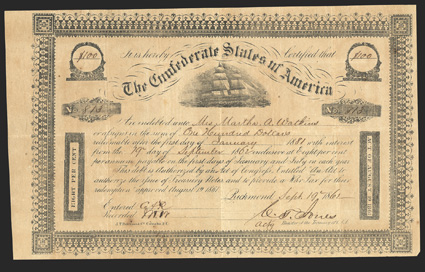 It is hereby Certified that
$100 $100
The Confederate States of America
Are indebted unto Mrs Martha A. Watkins
or assigns in the sum of One Hundred Dollars
redeemable after the first day of January 1881 with interest
from the day of September 1862 inclusive at Eight per cent
per annum payable on the first days of January and July in each year
This debt is authorized by an Act of Congress Entitled "An Act to
authorize the issue of Treasury Notes and to provide a War Tax for their
redemption" approved August 19th 1861
EIGHT PER CENT
Richmond Sept 19th 1862
Entered
Recorded
Jones
Actg